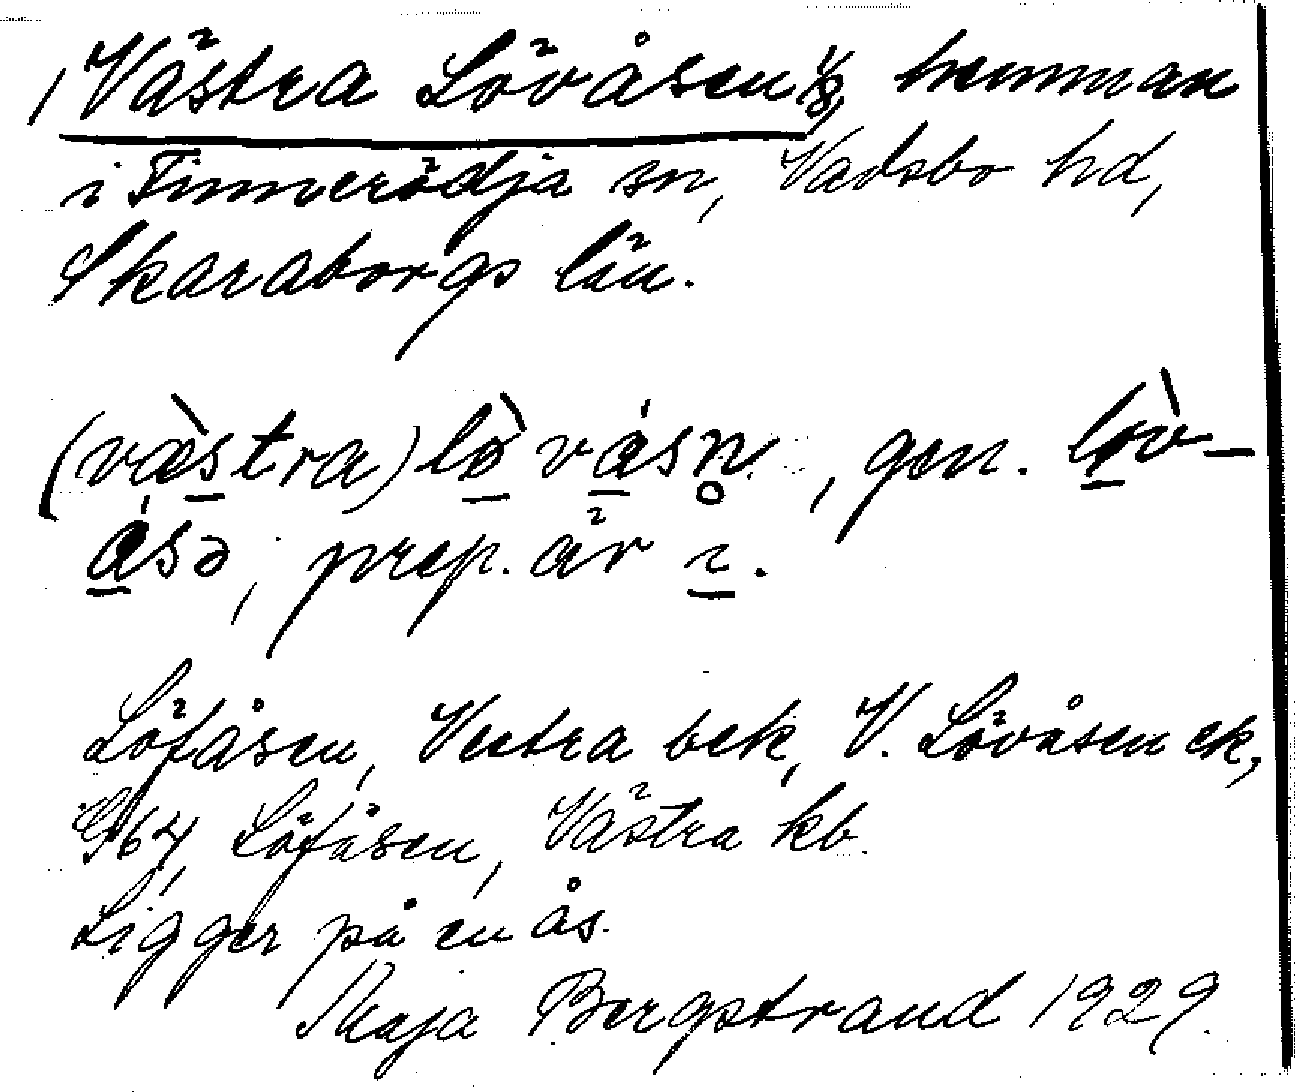 Västra Lövåsen 1/8, hemman
i Finnerödja sn, Vadsbo hd,
Skaraborgs län.
(væ̀stra) lø̀vásn̥, gen. lø̀v-
ásə, prep. är i.
Löfåsen, Vestra bek, V. Lövåsen ek,
G64, Löfåsen, Västra kb.
Ligger på en ås.
Maja Bergstrand 1929.